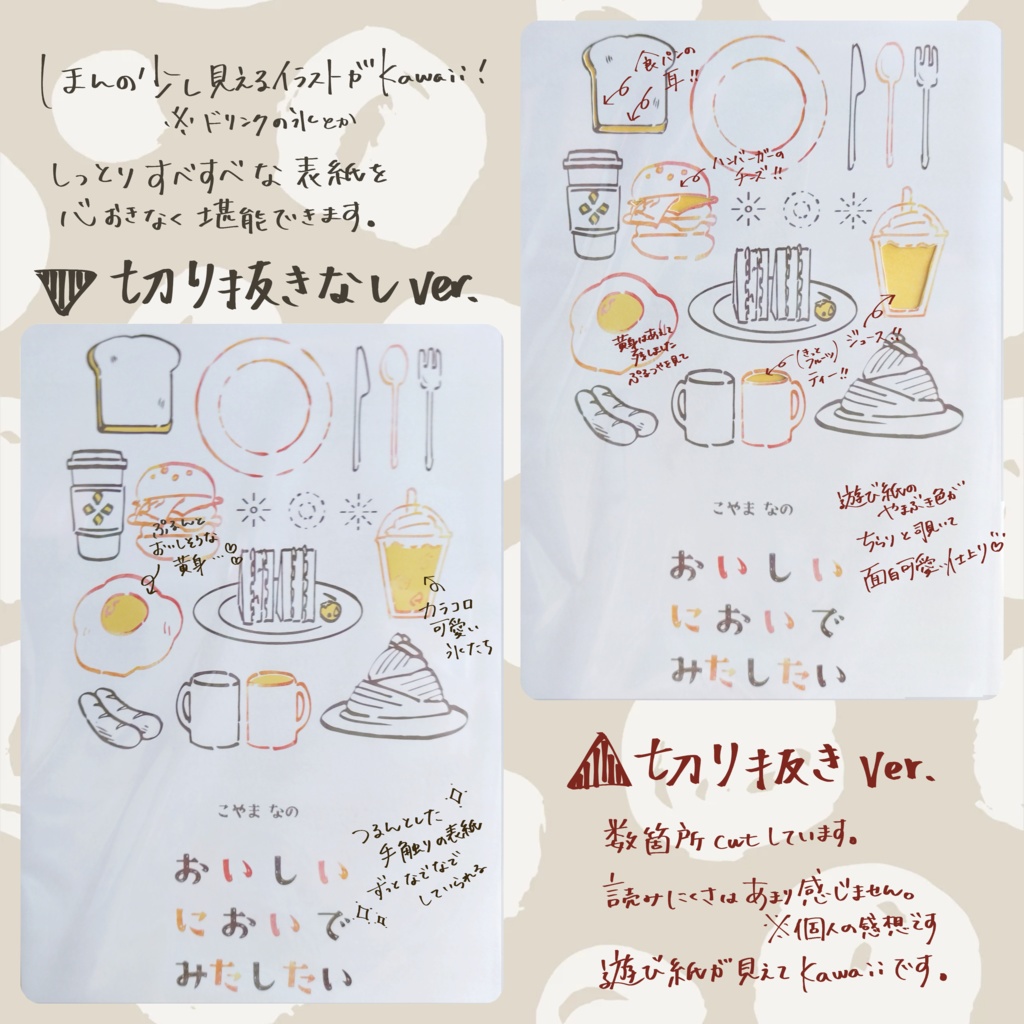 ほんの少し見えるイラストがKawaii!
※ドリンクの氷とか
しっとりすべすべな表紙を
心おきなく堪能できます。
切り抜きなしver.
ぷるんと
おいしそうな
黄身…♡
カラコロ
可愛い
氷たち
こやま なの
おいしい
においで
みたしたい
つるんとした
手触りの表紙
ずっとなでなで
していられる
食パンの
耳!!
ハンバーガーの
チーズ!!
黄身はあえて
残しました
ぷるつやを見て
ジュース!!
(きっと
フルーツ)
ティー!!
こやま なの
おいしい
においで
みたしたい
遊び紙の
やまぶき色が
ちらりと覗いて
面白可愛い仕上り♡
切り抜きver.
数箇所cutしています。
読みにくさはあまり感じません。
※個人の感想です
遊び紙が見えてKawaiiです。